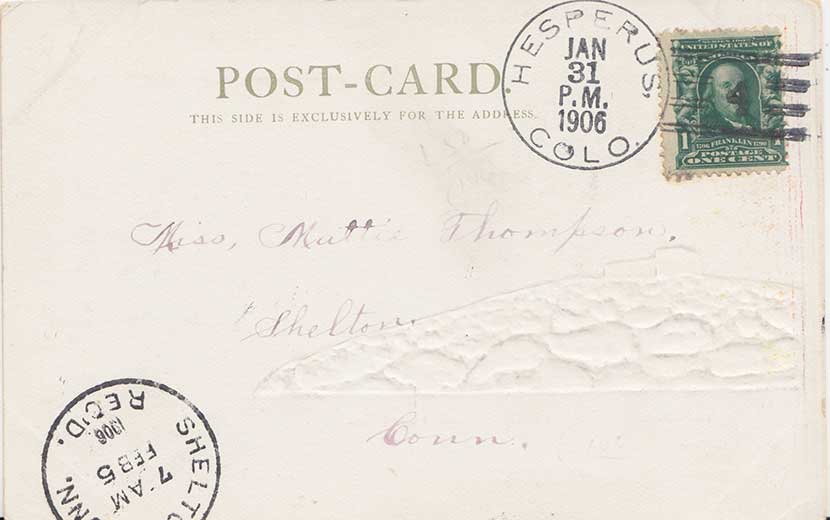 POST-CARD.
THIS SIDE IS EXCLUSIVELY FOR THE ADDRESS.
HESPERUS,
JAN
31
P.M.
1906
COLO.
UNITED STATES OF
1
1706 FRANKLIN 1790
POSTAGE
ONE CENT
Miss, Mattie Thompson,
Shelton.
Conn.
SHELTO
NN.
7 AM
FEB 5
1906
REC'D.